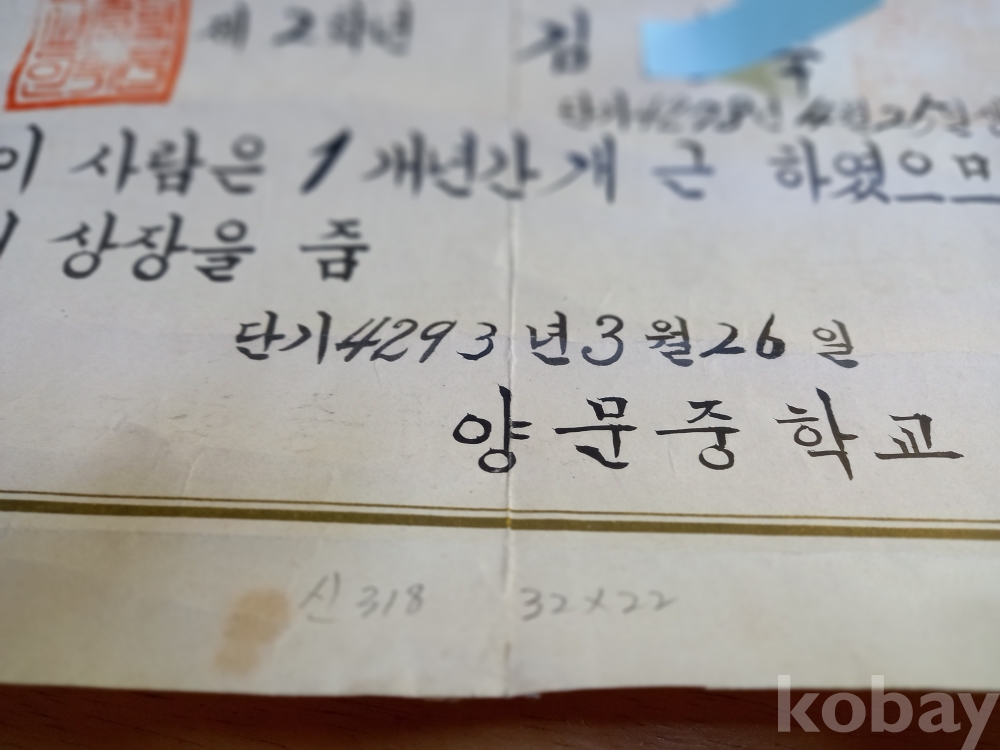 제 2학년 김 국
단기 4278년 4월 25일생
이 사람은 1 개년간 개 근 하였으므
이 상장을 줌
단기 4293년 3월 26일
양문중학교
신 318 32×22
kobay